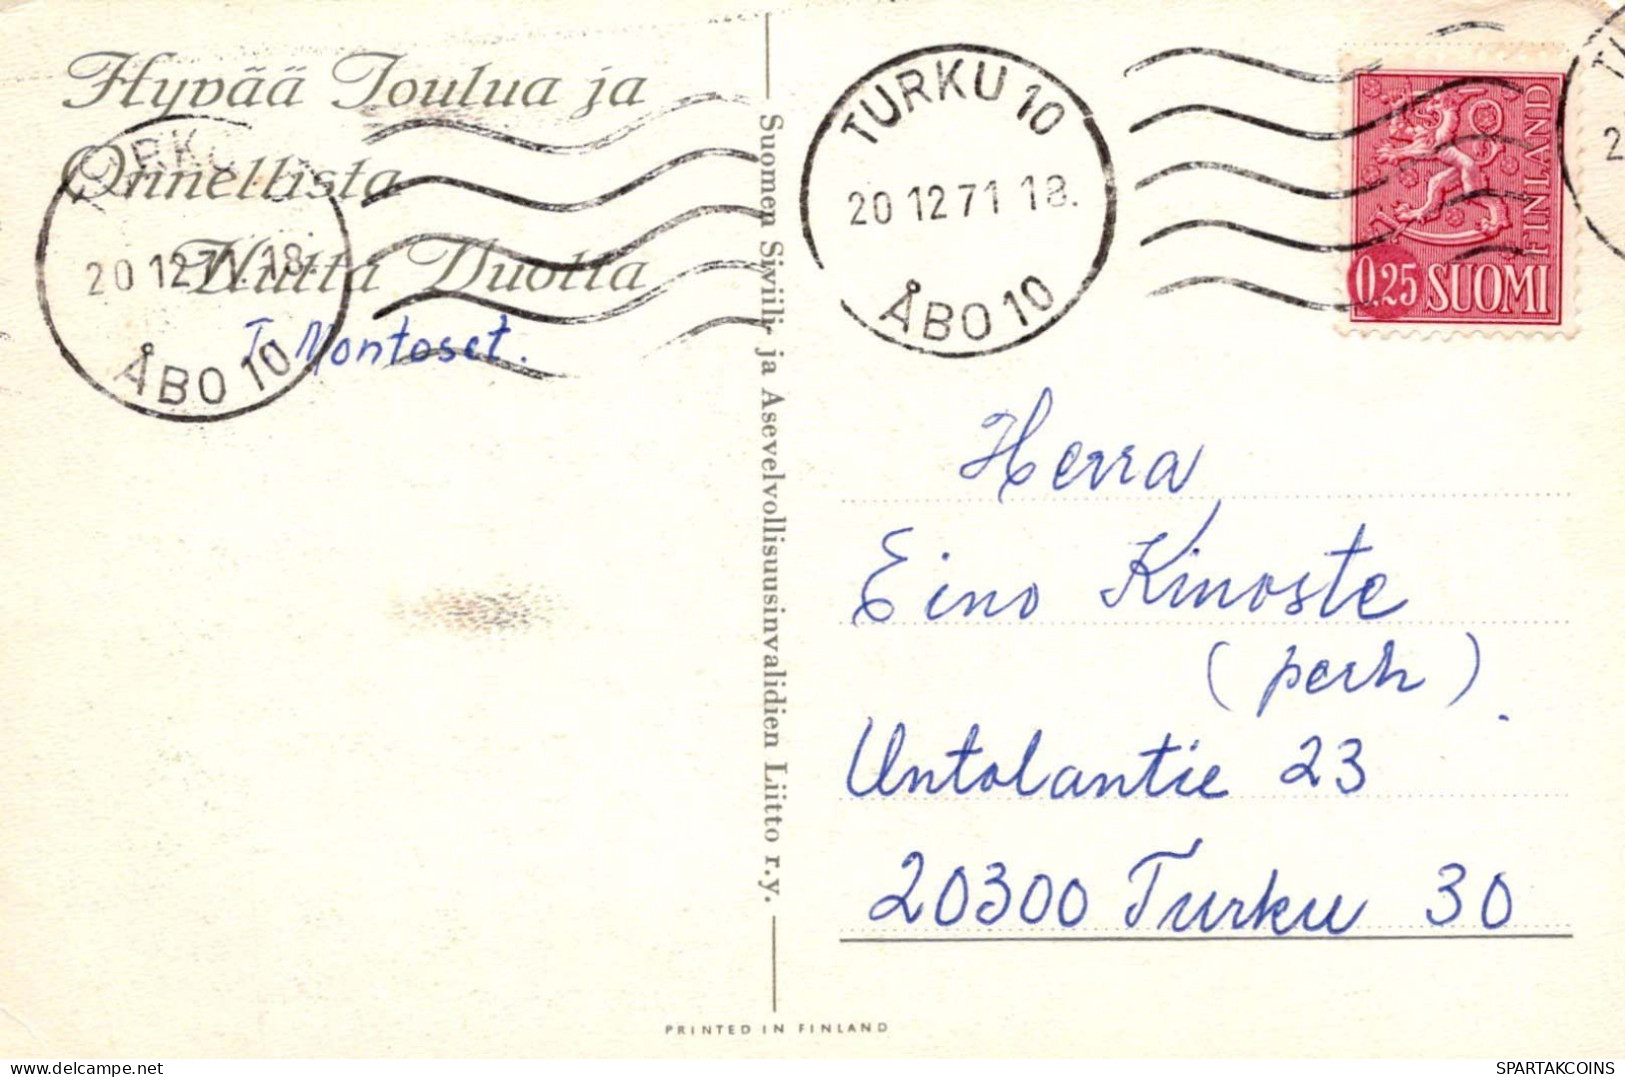 Hyvää Joulua ja
Onnellista
Uutta Vuotta
T. Montoset.
TURKU 10
20 12 71 18.
ÅBO 10
TURKU
20 12 71 18.
ÅBO 10
0.25 SUOMI
FINLAND
Suomen Siviili- ja Asevelvollisuusinvalidien Liitto r.y.
Herra
Eino Kinoste
(perh)
Untolantie 23
20300 Turku 30
PRINTED IN FINLAND
SPARTAKCOINS